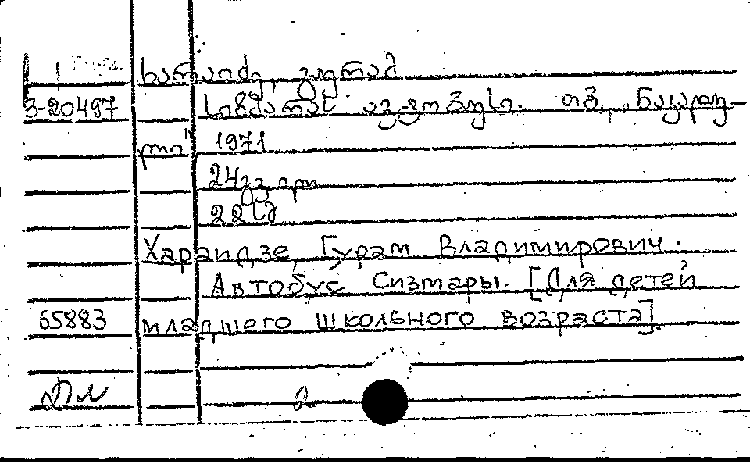 ხარაიძე, გურამ
3-20497 სიზმარას ავტობუსი. თბ., ნაკადუ-
ლი" 1971
24 გვ.
22 სმ
Хараидзе, Гурам Владимирович.
Автобус Сизмары. [Для детей
65883 младшего школьного возраста].
2